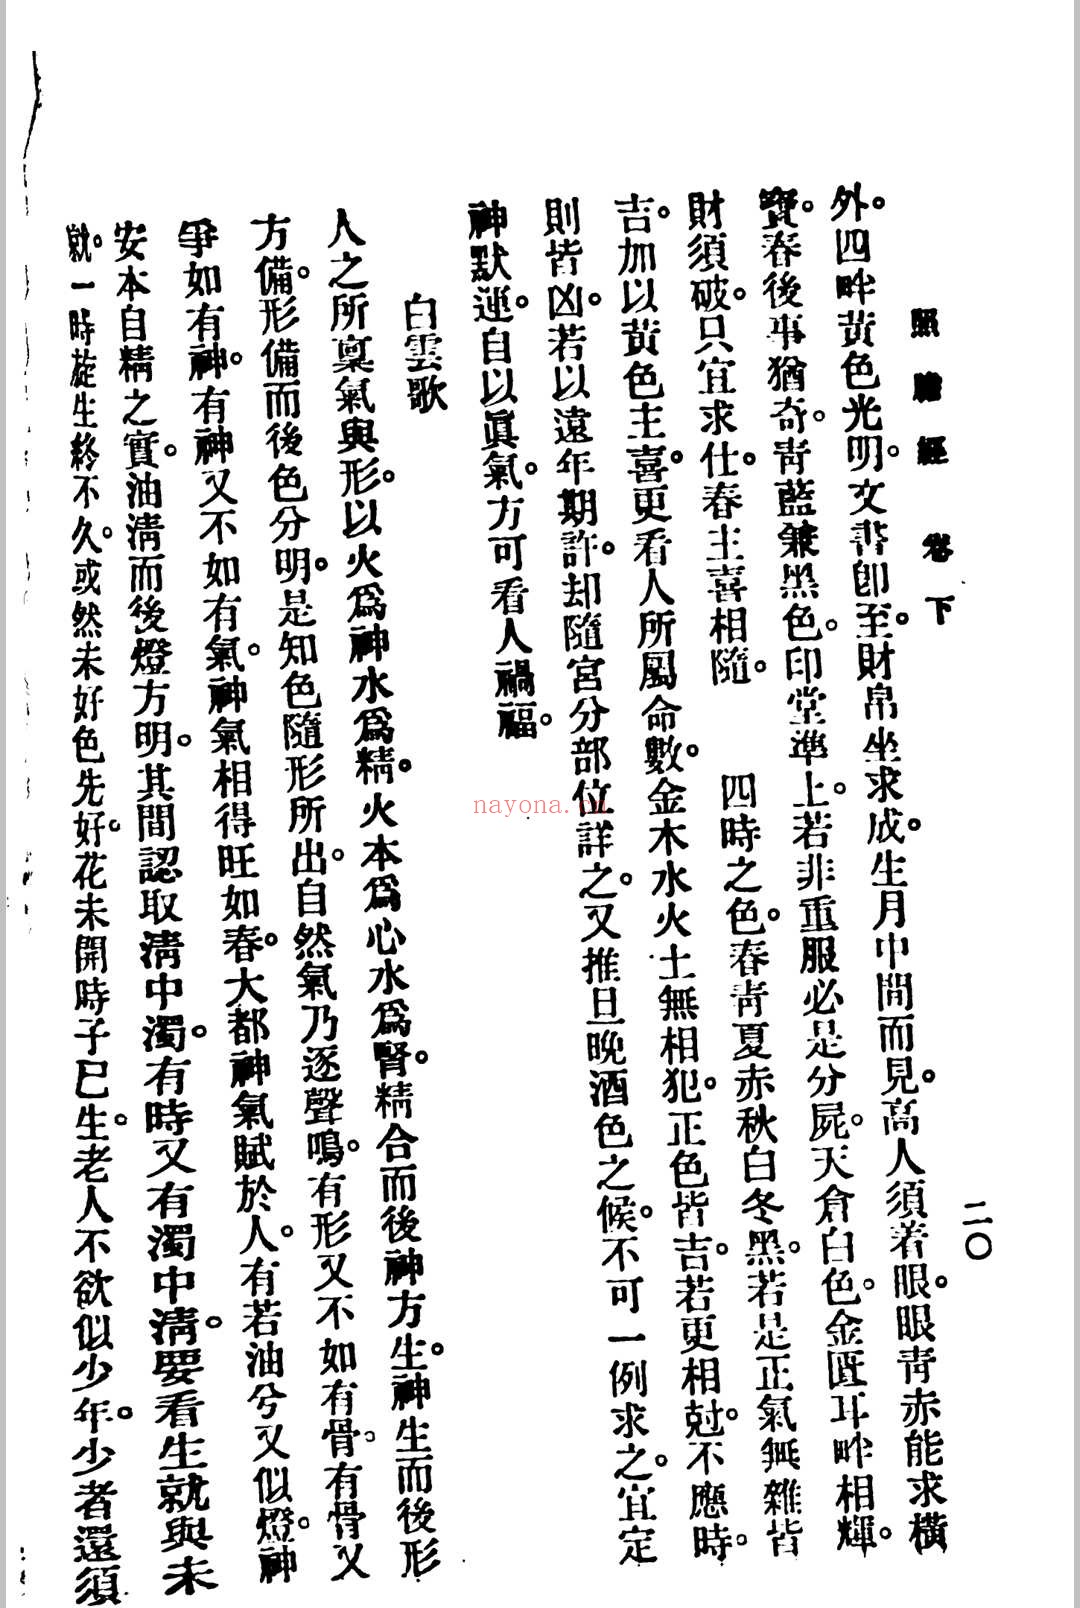 照膽經 卷下
二〇
外。四畔黃色光明。文書卽至。財帛坐求成。生月中間而見。高人須着眼。眼靑赤能求橫
寶。春後事猶奇。靑藍兼黑色。印堂準上。若非重服必是分屍。天倉白色。金匱耳畔相輝。
財須破。只宜求仕。春主喜相隨。 四時之色。春靑夏赤秋白冬黑。若是正氣無雜皆
吉。加以黃色主喜。更看人所屬命數。金木水火土無相犯。正色皆吉。若更相尅。不應時。
則皆凶。若以遠年期許。却隨宮分部位詳之。又推旦晚酒色之候。不可一例求之。宜定
神默運。自以眞氣。方可看人禍福。
白雲歌
人之所稟氣與形。以火爲神水爲精。火本爲心水爲腎。精合而後神方生。神生而後形
方備。形備而後色分明。是知色隨形所出。自然氣乃逐聲鳴。有形又不如有骨。有骨又
爭如有神。有神又不如有氣。神氣相得旺如春。大都神氣賦於人。有若油兮又似燈。神
安本自精之實。油淸而後燈方明。其間認取淸中濁。有時又有濁中淸。要看生就與未
就。一時旋生終不久。或然未好色先好。花未開時子已生。老人不欲似少年。少者還須
nayona.cn